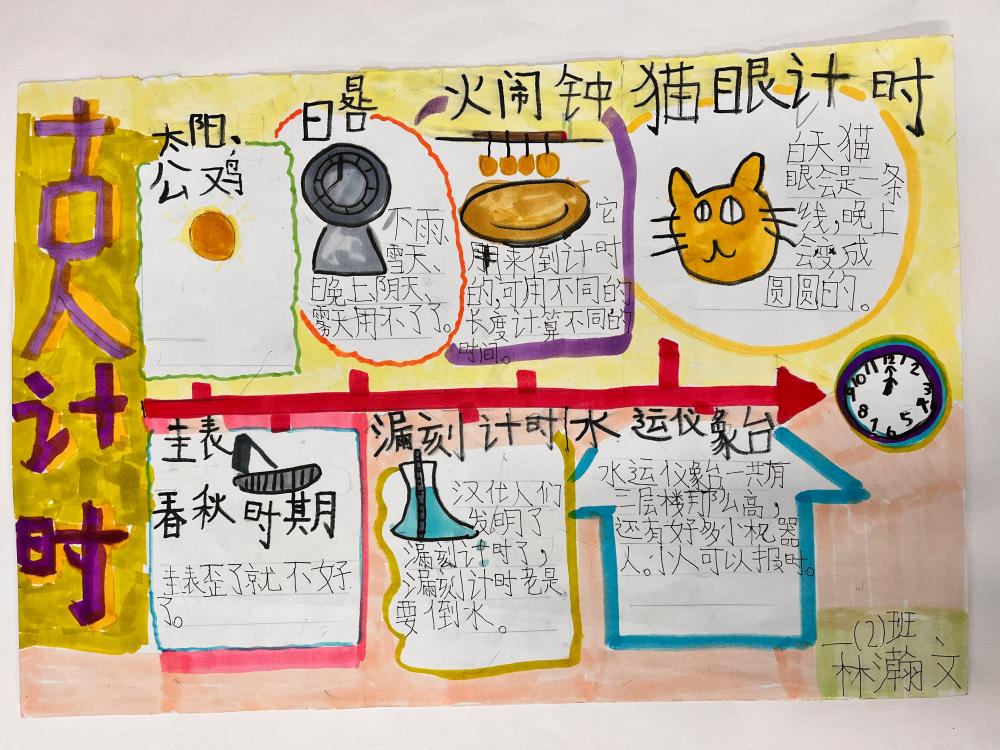 古人计时
太阳、
公鸡
日晷
不雨、
雪天、
晚上、阴天、
雾天用不了了。
火闹钟
它
用来倒计时
的,可用不同的
长度计算不同的
时间。
猫眼计时
白天猫
眼会是一条
线,晚上
会变成
圆圆的。
12
1
2
3
4
5
6
7
8
9
10
11
圭表
春秋时期
圭表歪了就不好
了。
漏刻计时
汉代人们
发明了
漏刻计时了,
漏刻计时老是
要倒水。
水运仪象台
水运仪象台一共有
三层楼那么高,
还有好多小机器
人。小人可以报时。
一(2)班
林瀚文